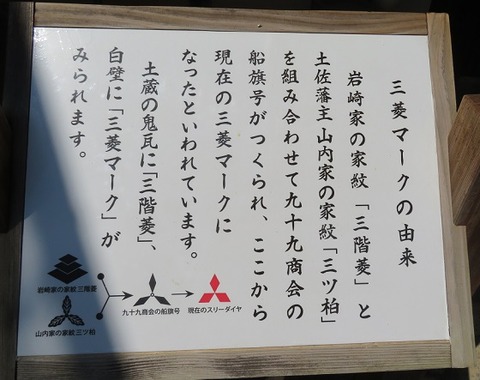 三菱マークの由来
岩崎家の家紋「三階菱」と
土佐藩主山内家の家紋「三ツ柏」
を組み合わせて九十九商会の
船旗号がつくられ、ここから
現在の三菱マークに
なったといわれています。
土蔵の鬼瓦に「三階菱」、
白壁に「三菱マーク」が
みられます。
岩崎家の家紋 三階菱
山内家の家紋 三ツ柏
九十九商会の船旗号
現在のスリーダイヤ